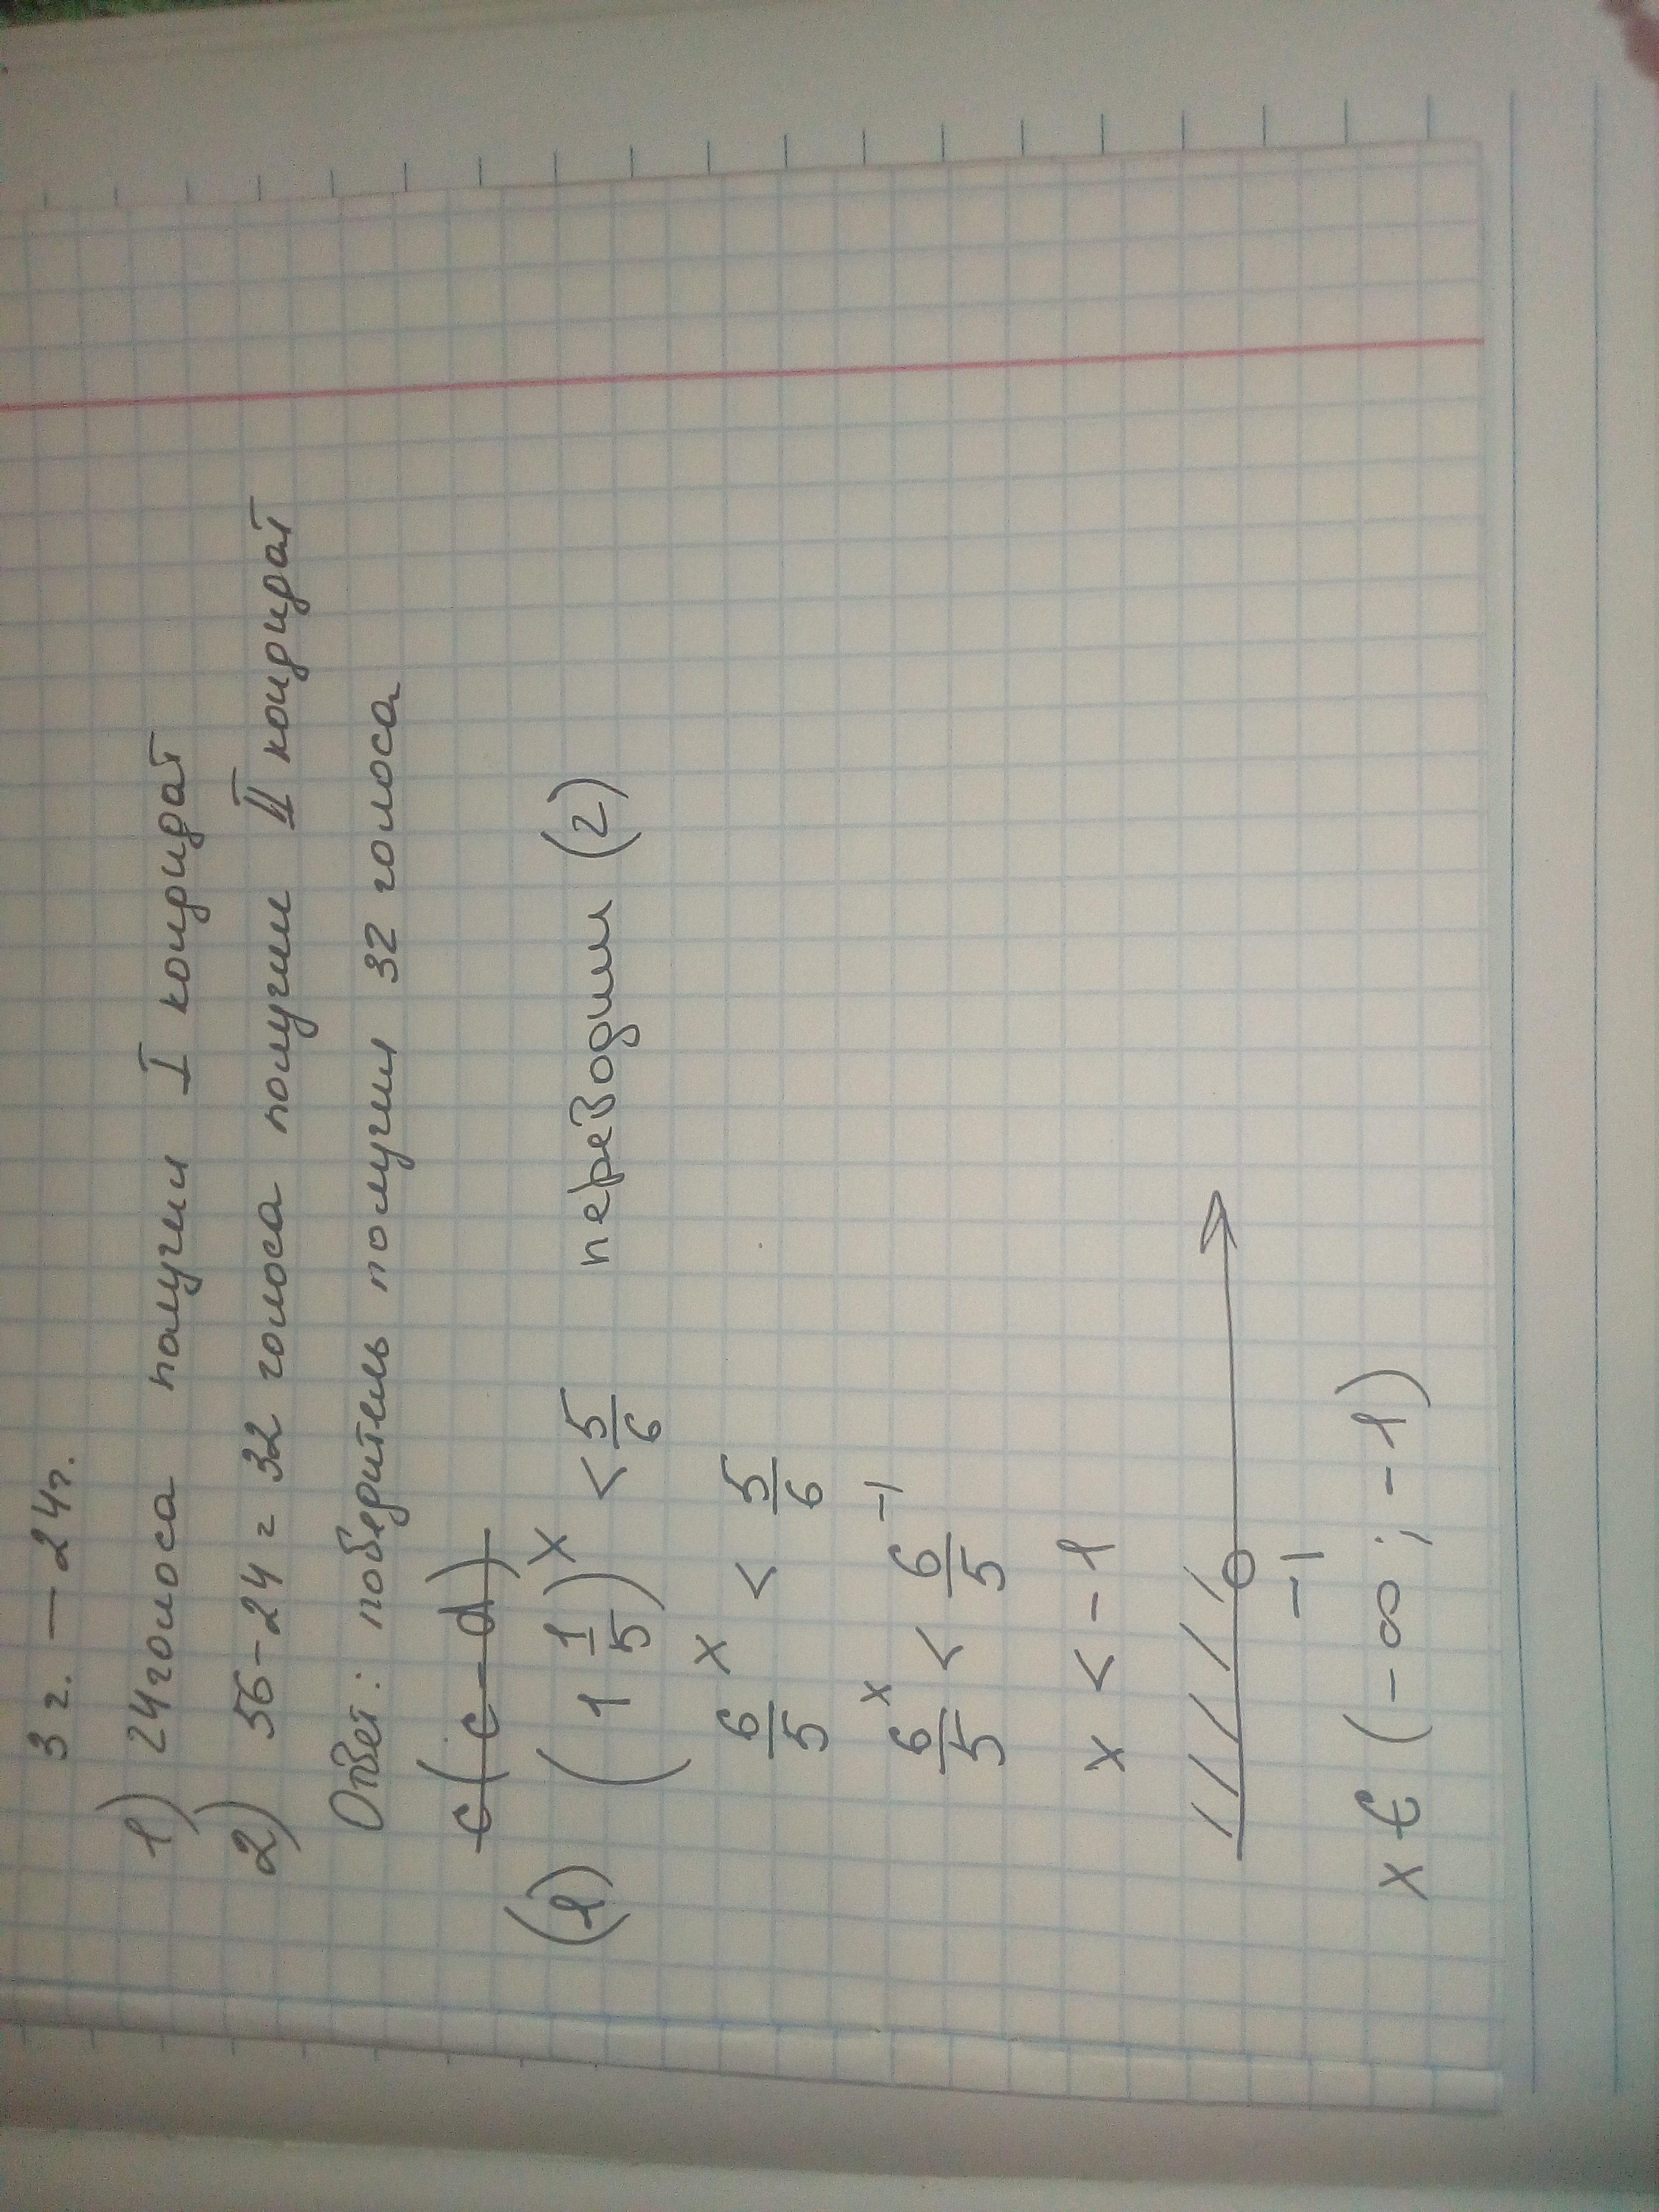 3 г. — 24г.
1) 24голоса получил I кондидат
2) 56-24 = 32 голоса получил II кондидат
Ответ: победитель получил 32 голоса
c(c-d)
(1) (1 1/5)^x < 5/6 переводим (2)
6/5^x < 5/6
6/5^x < 6/5^-1
x < -1
-1
x ∈ (-∞; -1)